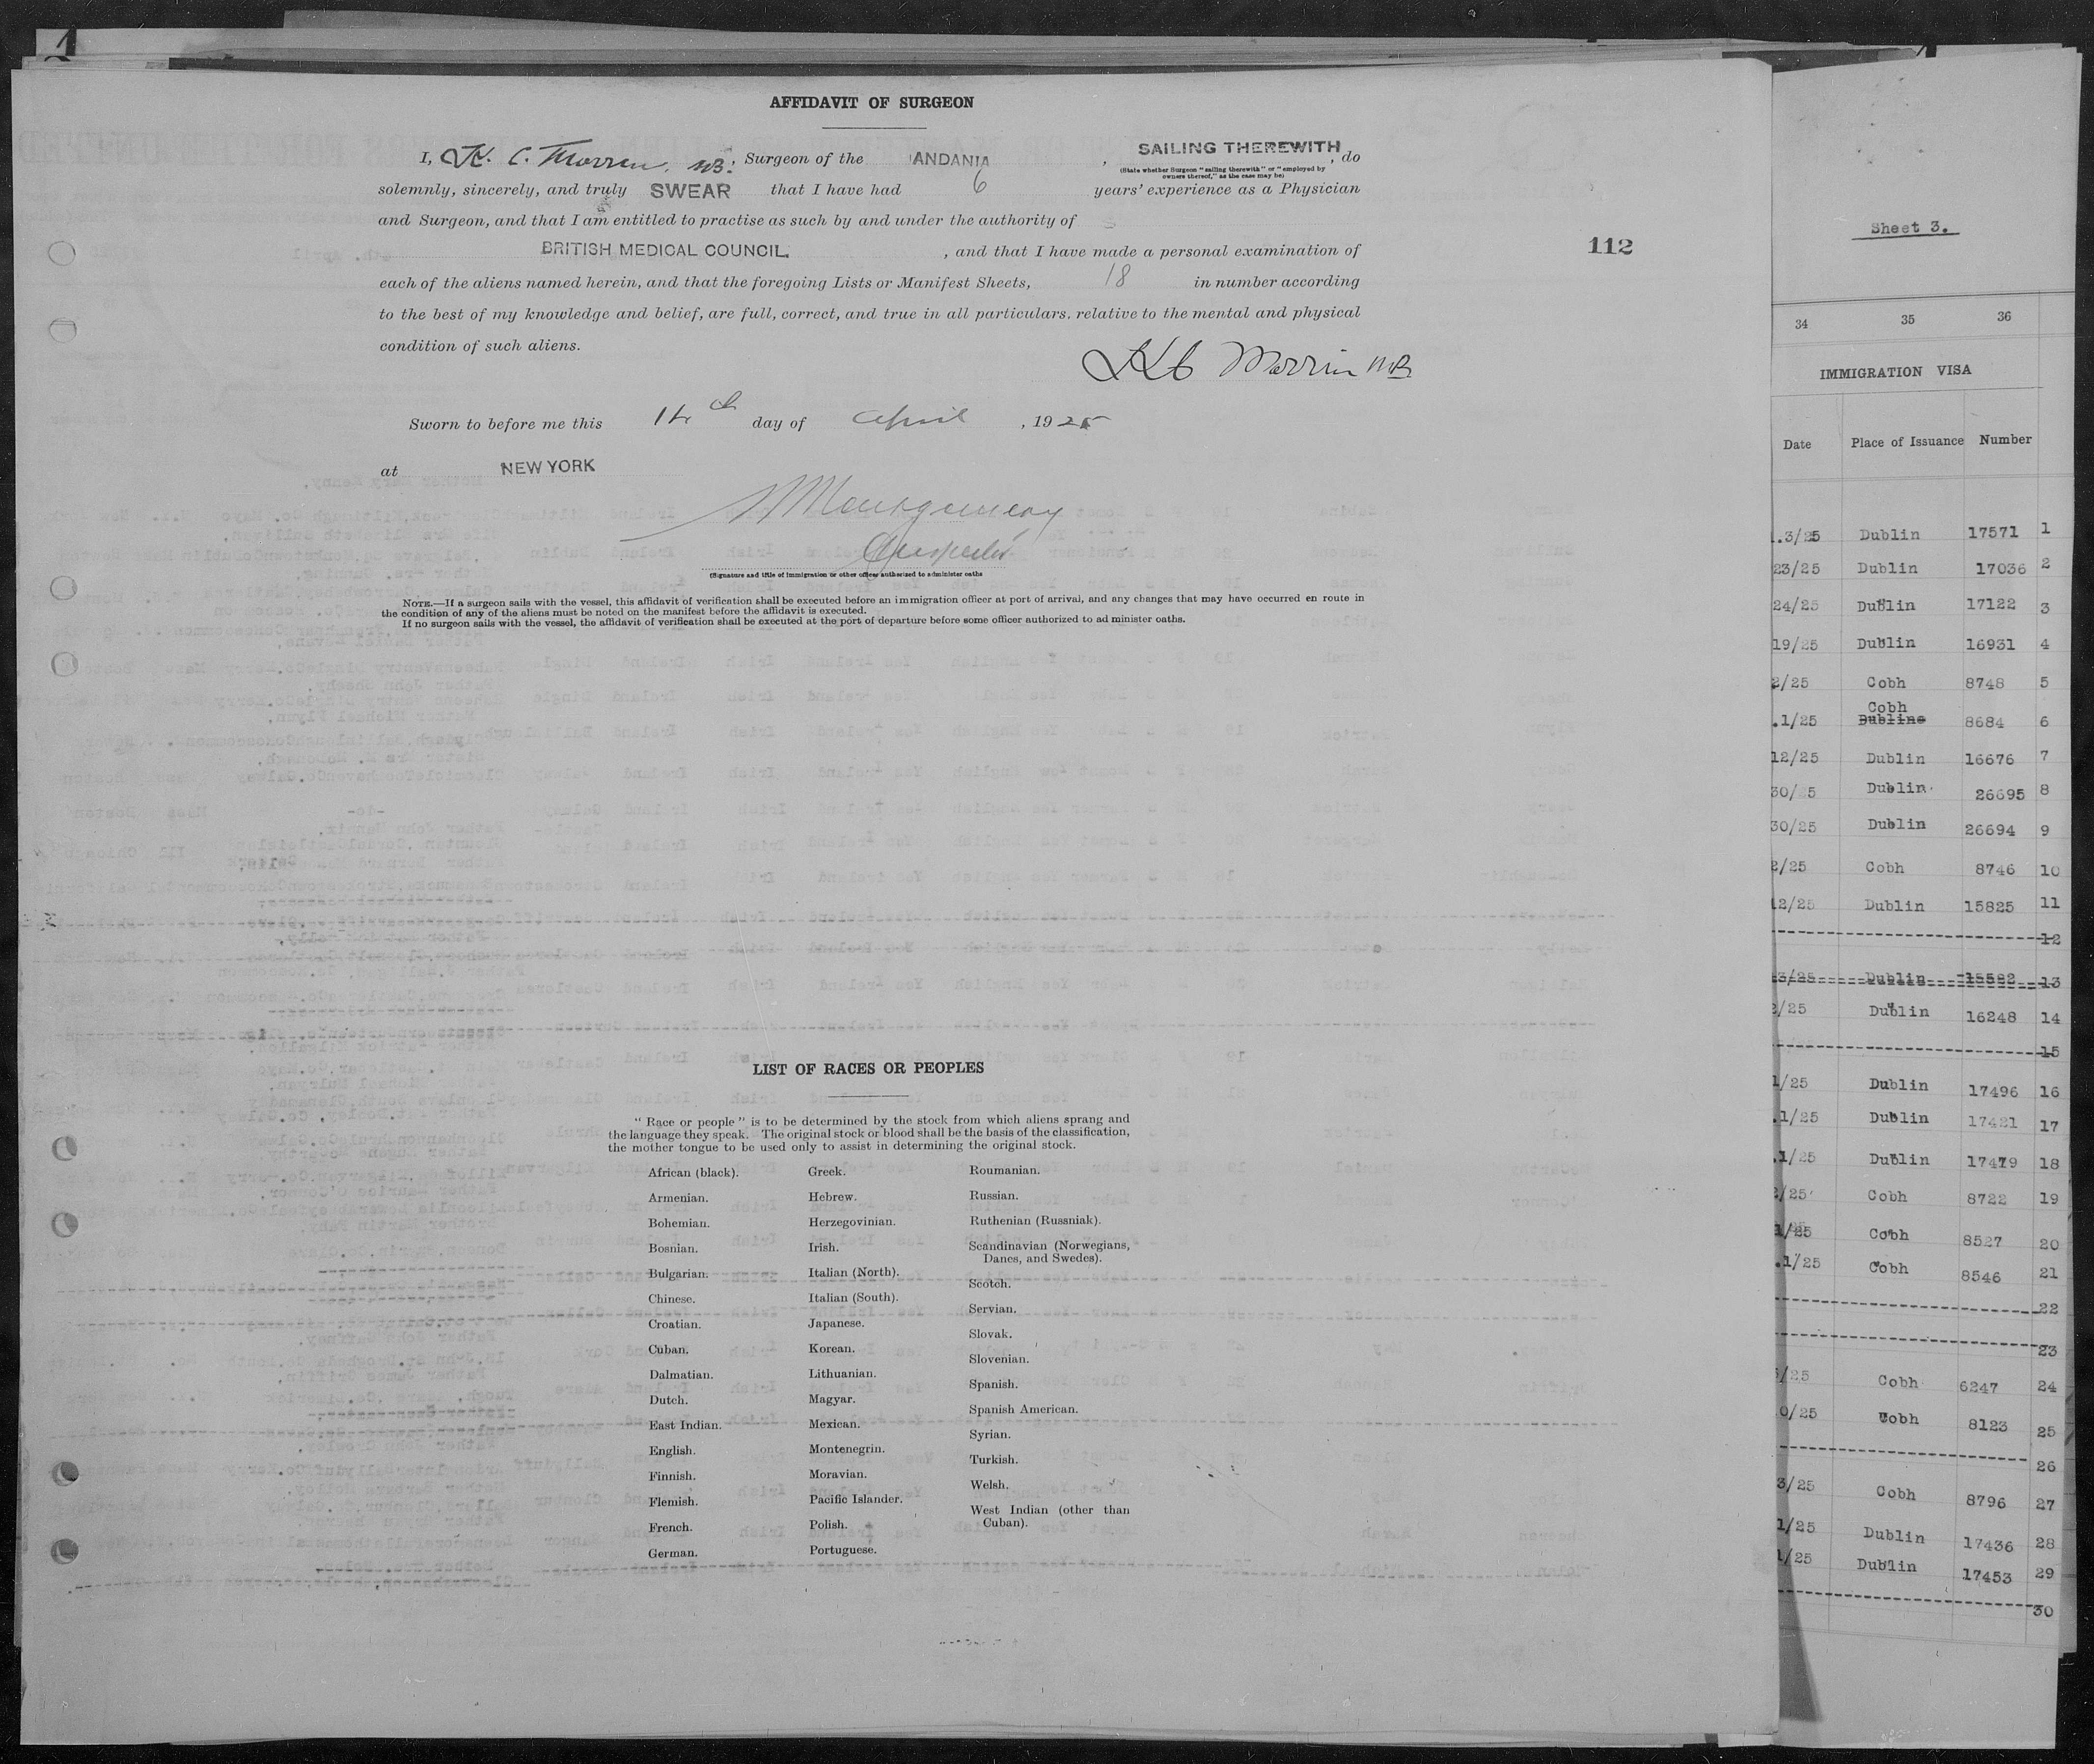 AFFIDAVIT OF SURGEON
I, K. C. Morren, MB. Surgeon of the ANDANIA, SAILING THEREWITH, do
(State whether Surgeon "sailing therewith" or "employed by
owners thereof," as the case may be)
solemnly, sincerely, and truly SWEAR that I have had 6 years' experience as a Physician
and Surgeon, and that I am entitled to practise as such by and under the authority of
BRITISH MEDICAL COUNCIL, and that I have made a personal examination of
112
each of the aliens named herein, and that the foregoing Lists or Manifest Sheets, 18 in number according
to the best of my knowledge and belief, are full, correct, and true in all particulars. relative to the mental and physical
condition of such aliens.
KC Morrin MB
Sworn to before me this 14th day of April, 1925
at NEW YORK
Montgomery
Inspector
(Signature and title of immigration or other officer authorized to administer oaths
NOTE.—If a surgeon sails with the vessel, this affidavit of verification shall be executed before an immigration officer at port of arrival, and any changes that may have occurred en route in
the condition of any of the aliens must be noted on the manifest before the affidavit is executed.
If no surgeon sails with the vessel, the affidavit of verification shall be executed at the port of departure before some officer authorized to ad minister oaths.
LIST OF RACES OR PEOPLES
"Race or people" is to be determined by the stock from which aliens sprang and
the language they speak. The original stock or blood shall be the basis of the classification,
the mother tongue to be used only to assist in determining the original stock.
African (black).
Armenian.
Bohemian.
Bosnian.
Bulgarian.
Chinese.
Croatian.
Cuban.
Dalmatian.
Dutch.
East Indian.
English.
Finnish.
Flemish.
French.
German.
Greek.
Hebrew.
Herzegovinian.
Irish.
Italian (North).
Italian (South).
Japanese.
Korean.
Lithuanian.
Magyar.
Mexican.
Montenegrin.
Moravian.
Pacific Islander.
Polish.
Portuguese.
Roumanian.
Russian.
Ruthenian (Russniak).
Scandinavian (Norwegians,
Danes, and Swedes).
Scotch.
Servian.
Slovak.
Slovenian.
Spanish.
Spanish American.
Syrian.
Turkish.
Welsh.
West Indian (other than
Cuban).
Sheet 3.
34 35 36
IMMIGRATION VISA
Date Place of Issuance Number
.3/25 Dublin 17571 1
23/25 Dublin 17036 2
24/25 Dublin 17122 3
19/25 Dublin 16931 4
2/25 Cobh 8748 5
Cobh
.1/25 Dublino 8684 6
12/25 Dublin 16676 7
30/25 Dublin 26695 8
30/25 Dublin 26694 9
2/25 Cobh 8746 10
12/25 Dublin 15825 11
12
3/25 Dublin 15582 13
2/25 Dublin 16248 14
15
1/25 Dublin 17496 16
.1/25 Dublin 17421 17
.1/25 Dublin 17479 18
2/25 Cobh 8722 19
1/25 Cobh 8527 20
.1/25 Cobh 8546 21
22
23
/25 Cobh 6247 24
0/25 Cobh 8123 25
26
3/25 Cobh 8796 27
1/25 Dublin 17436 28
1/25 Dublin 17453 29
30